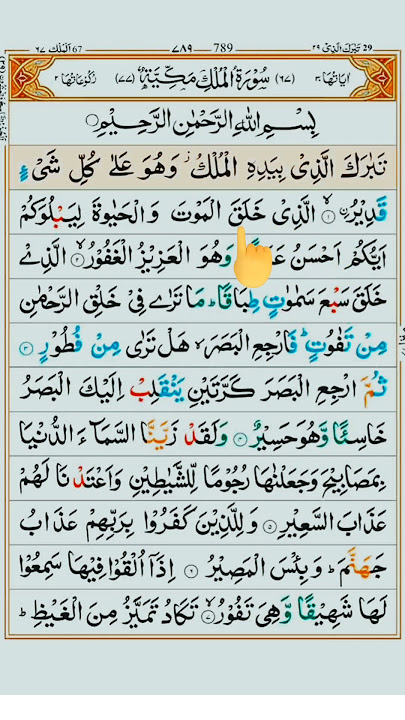 ٦٧ الملك 67 ٧٨٩ 789 تبرك الذي ٢٩ 29
اٰيَاتُهَا ٣٠ (٦٧) سُوْرَةُ الْمُلْكِ مَكِّيَّةٌ (٧٧) رُكُوْعَاتُهَا ٢
بِسْمِ اللّٰهِ الرَّحْمٰنِ الرَّحِيْمِ
تَبٰرَكَ الَّذِيْ بِيَدِهِ الْمُلْكُ ز وَهُوَ عَلٰى كُلِّ شَيْءٍ
قَدِيْرُ ۨ ۝١ الَّذِيْ خَلَقَ الْمَوْتَ وَالْحَيٰوةَ لِيَبْلُوَكُمْ
اَيُّكُمْ اَحْسَنُ وَهُوَ الْعَزِيْزُ الْغَفُوْرُ ۝٢ الَّذِيْ
خَلَقَ سَبْعَ سَمٰوٰتٍ طِبَاقًا ؕ مَا تَرٰى فِيْ خَلْقِ الرَّحْمٰنِ
مِنْ تَفٰوُتٍ ؕ فَارْجِعِ الْبَصَرَ ۙ هَلْ تَرٰى مِنْ فُطُوْرٍ ۝٣
ثُمَّ ارْجِعِ الْبَصَرَ كَرَّتَيْنِ يَنْقَلِبْ اِلَيْكَ الْبَصَرُ
خَاسِئًا وَّهُوَ حَسِيْرٌ ۝٤ وَلَقَدْ زَيَّنَّا السَّمَآءَ الدُّنْيَا
بِمَصَابِيْحَ وَجَعَلْنٰهَا رُجُوْمًا لِّلشَّيٰطِيْنِ وَاَعْتَدْنَا لَهُمْ
عَذَابَ السَّعِيْرِ ۝٥ وَلِلَّذِيْنَ كَفَرُوْا بِرَبِّهِمْ عَذَابُ
جَهَنَّمَ ؕ وَبِئْسَ الْمَصِيْرُ ۝٦ اِذَآ اُلْقُوْا فِيْهَا سَمِعُوْا
لَهَا شَهِيْقًا وَّهِيَ تَفُوْرُ ۝٧ تَكَادُ تَمَيَّزُ مِنَ الْغَيْظِ ؕ